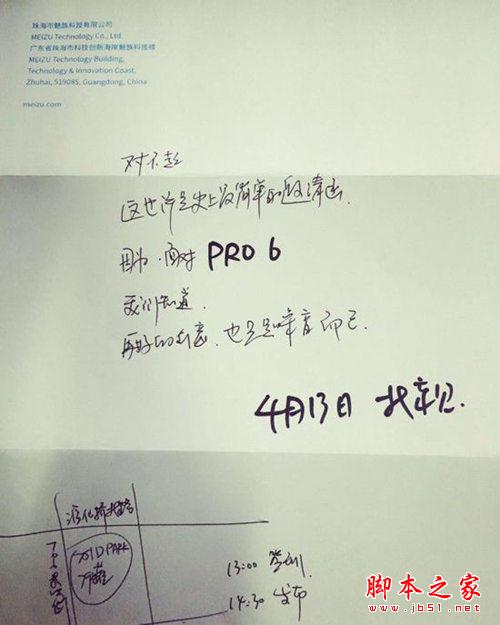 珠海市魅族科技有限公司
MEIZU Technology Co., Ltd.
广东省珠海市科技创新海岸魅族科技楼
MEIZU Technology Building,
Technology & Innovation Coast,
Zhuhai, 519085, Guangdong, China
meizu.com
对不起
这也许是史上最简单的邀请函.
因为,面对 PRO 6
我们知道.
再好的创意,也只是噪音而已.
4月13日 北京见.
751D PARK
13:00 签到
14:30 发布
脚本之家
www.jb51.net